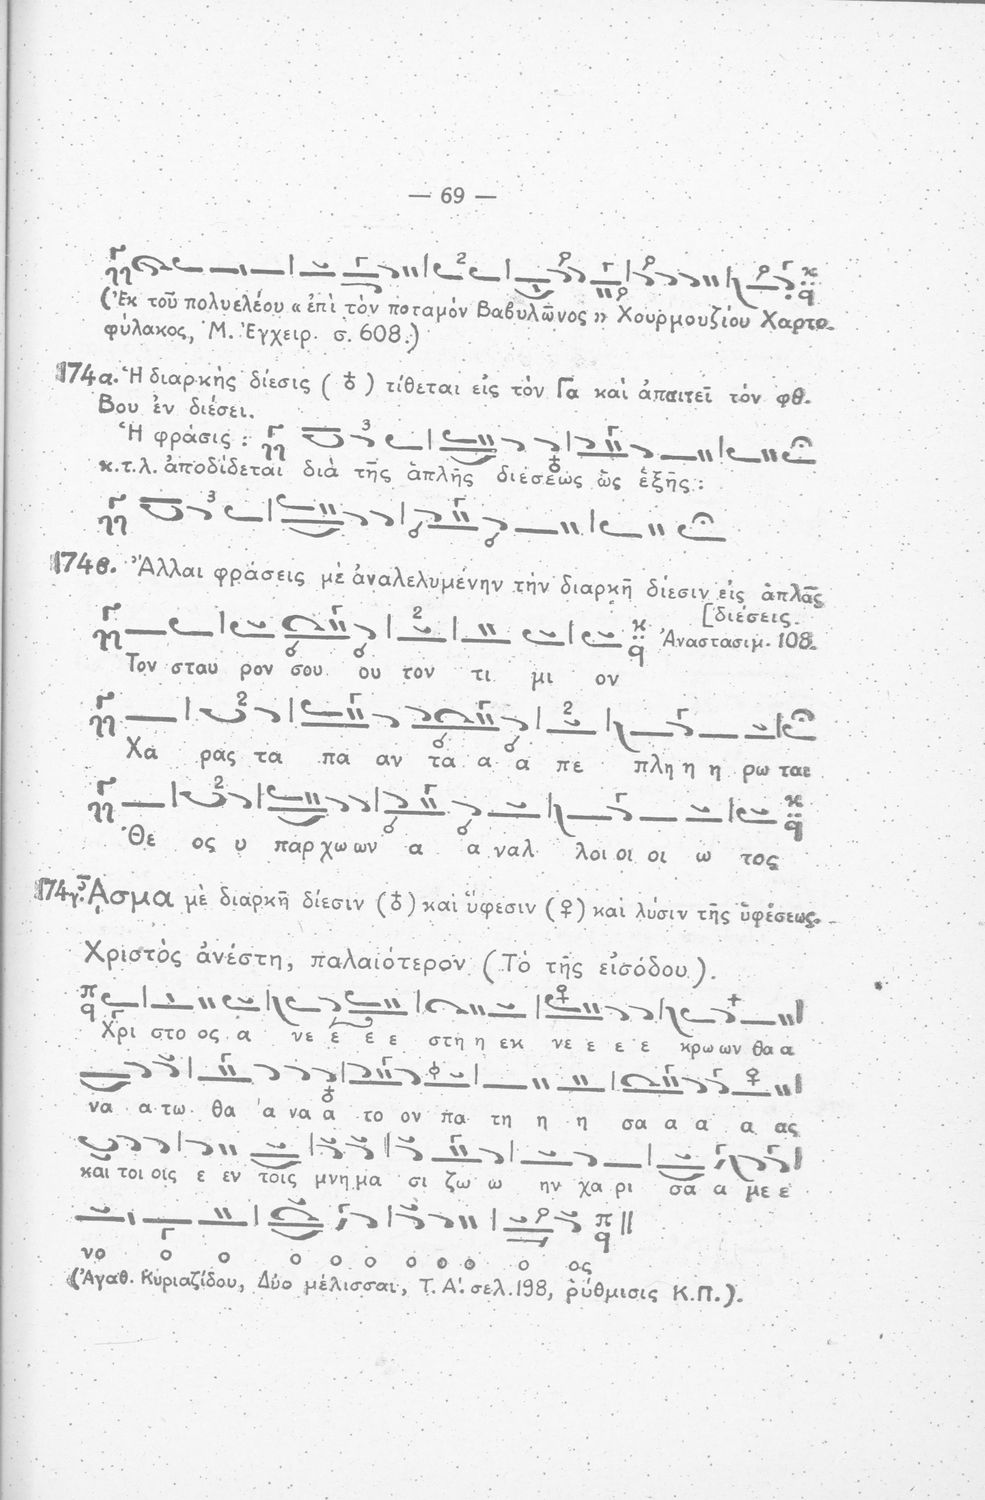 — 69 —
(Ἐκ τοῦ πολυελέου «ἐπὶ τὸν ποταμὸν Βαβυλῶνος» Χουρμουζίου Χαρτο-
φύλακος, Μ. Ἐγχειρ. σ. 608.)
174α. Ἡ διαρκὴς δίεσις (♁) τίθεται εἰς τὸν Γα καὶ ἀπαιτεῖ τὸν φθ.
Βου ἐν διέσει.
Ἡ φράσις :
κ.τ.λ. ἀποδίδεται διὰ τῆς ἁπλῆς διέσεως ὡς ἑξῆς :
174β. Ἄλλαι φράσεις μὲ ἀναλελυμένην τὴν διαρκῆ δίεσιν εἰς ἁπλᾶς
[διέσεις.
Ἀναστασιμ. 108.
Τον σταυ ρον σου ου τον τι μι ον
Χα ρας τα πα αν τα α α πε πλη η η ρω ται
Θε ος υ παρ χω ων α α ναλ λοι οι οι ω τος
174γ. ᾎσμα μὲ διαρκῆ δίεσιν (♁) καὶ ὕφεσιν (♀) καὶ λύσιν τῆς ὑφέσεως.
Χριστὸς ἀνέστη, παλαιότερον (Τὸ τῆς εἰσόδου).
Χρι στο ος α νε ε ε ε στη η εκ νε ε ε ε κρω ων θα α
να α τω θα α να α το ον πα τη η η σα α α α ας
και τοι οις ε εν τοις μνη μα σι ζω ω ην χα ρι σα α με ε
νο ο ο ο ο ο ο ο ο ο ος
(Ἀγαθ. Κυριαζίδου, Δύο μέλισσαι, Τ. Α΄. σελ. 198, ῥύθμισις Κ.Π.).